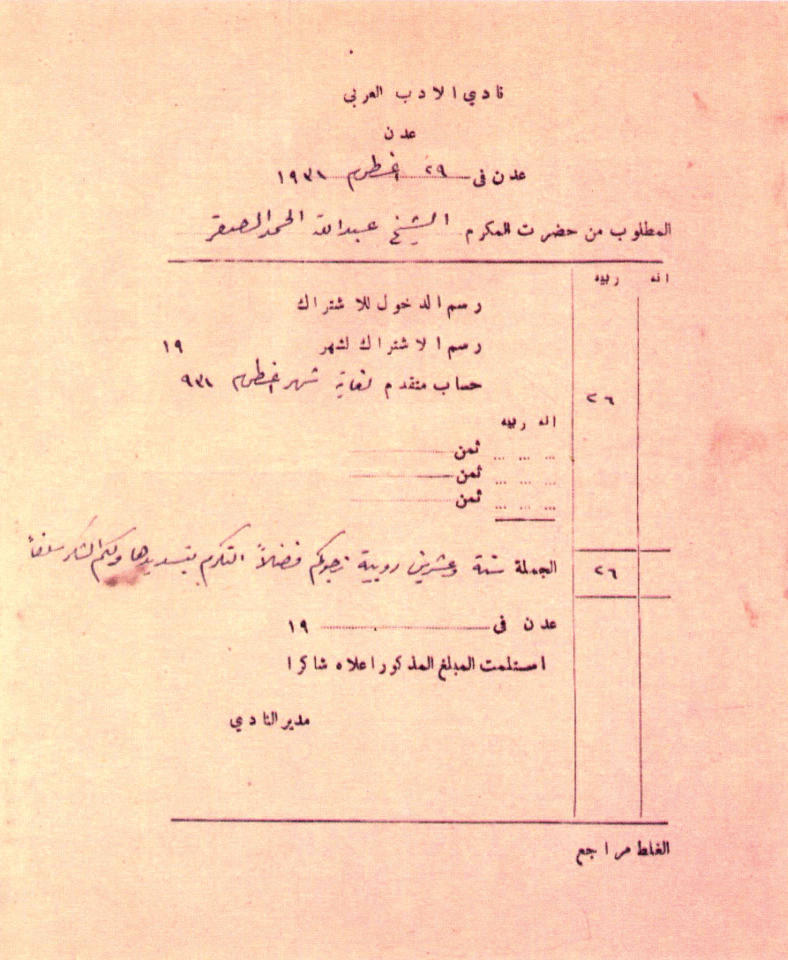 نادي الادب العربى
عدن
عدن فى ٢٩ اغطس ١٩٣١
المطلوب من حضرت المكرم الشيخ عبدالله الحمد الصقر
انه ربيه
رسم الدخول للاشتراك
رسم الاشتراك لشهر ١٩
حساب متقدم لغاية شهر اغطس ٩٣١ ٢٦
انه ربيه
... ... ... ثمن
... ... ... ثمن
... ... ... ثمن
الجملة ستة وعشرين روبية نرجوكم فضلاً التكرم بتسديدها ولكم الشكر سلفاً ٢٦
عدن فى ١٩
استلمت المبلغ المذكور اعلاه شاكرا
مدير النادي
الغلط مراجع